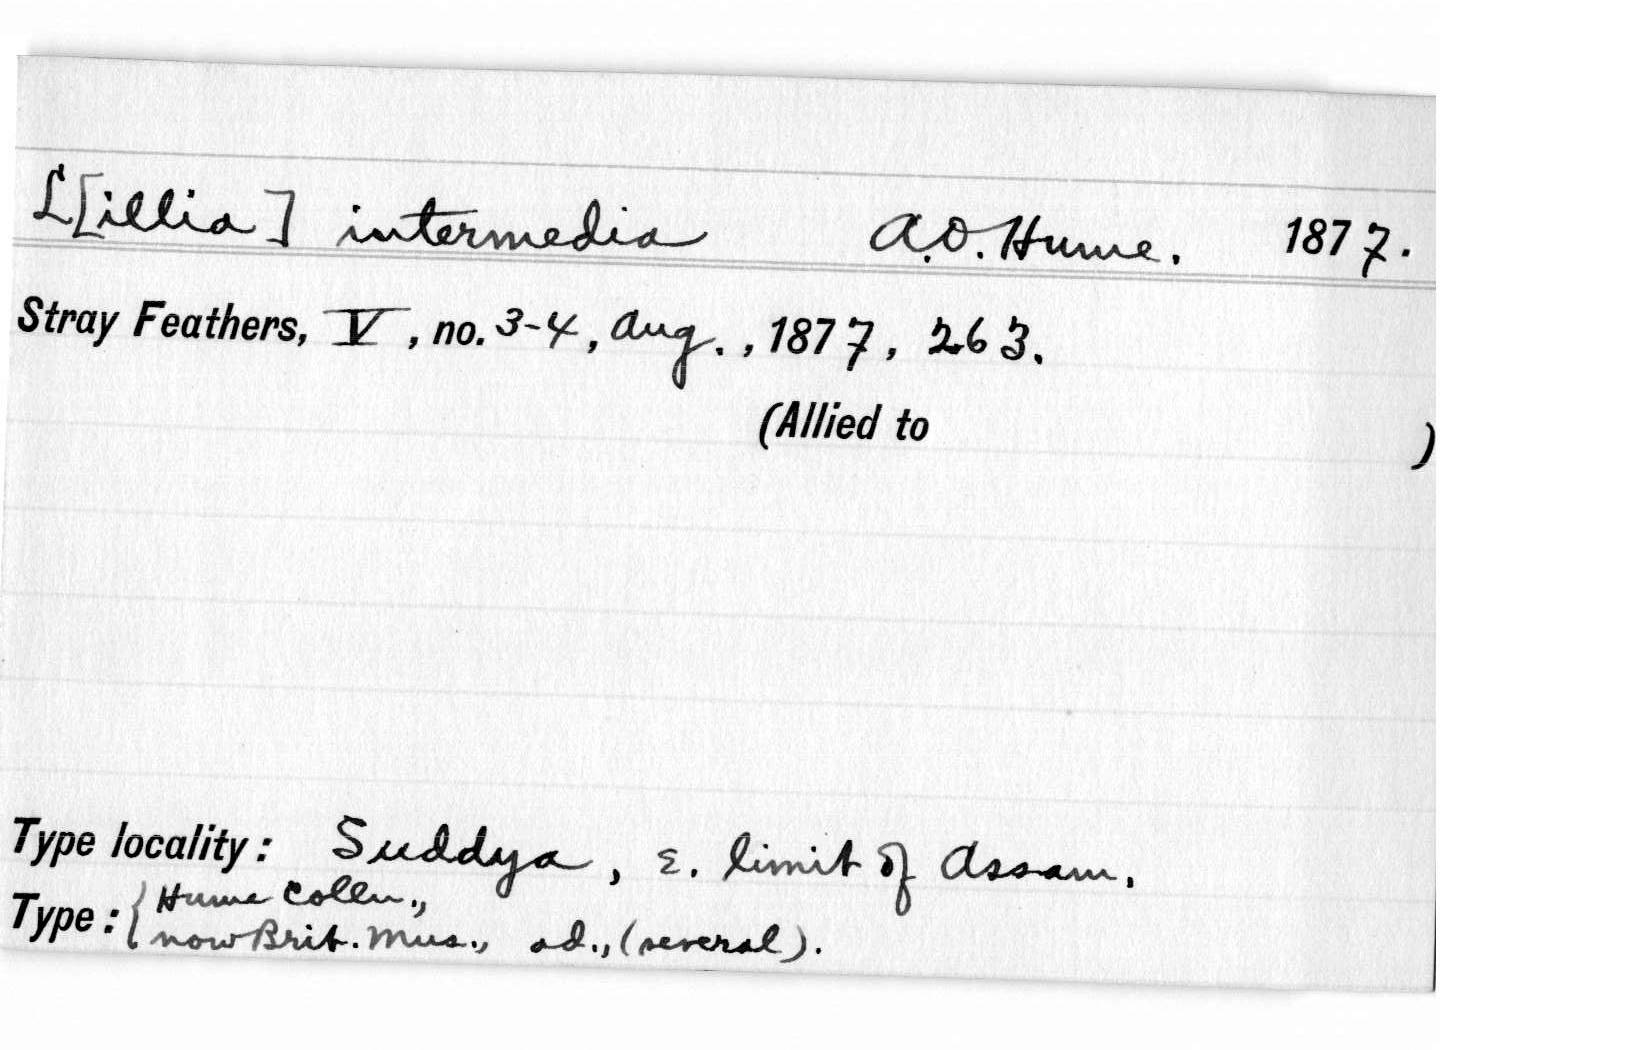 L[illia] intermedia A.O. Hume. 1877.
Stray Feathers, V, no. 3-4, Aug., 1877, 263.
(Allied to )
Type locality: Suddya, E. limit of Assam.
Type: { Hume Colln.,
now Brit. Mus., ad., (several).